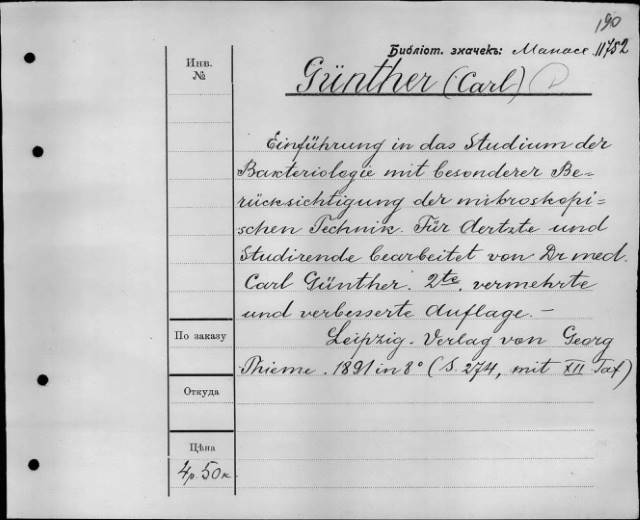 190
Библіот. значекъ: Manace 11752
Инв.
№
Günther (Carl)
Einführung in das Studium der
Bakteriologie mit besonderer Be=
rücksichtigung der mikroskopi=
schen Technik. Für Aertzte und
Studirende bearbeitet von Dr med.
Carl Günther. 2te, vermehrte
und verbesserte Auflage. –
Leipzig. Verlag von Georg
Thieme. 1891 in 8° (S. 274, mit XII Taf)
По заказу
Откуда
Цѣна
4р. 50к